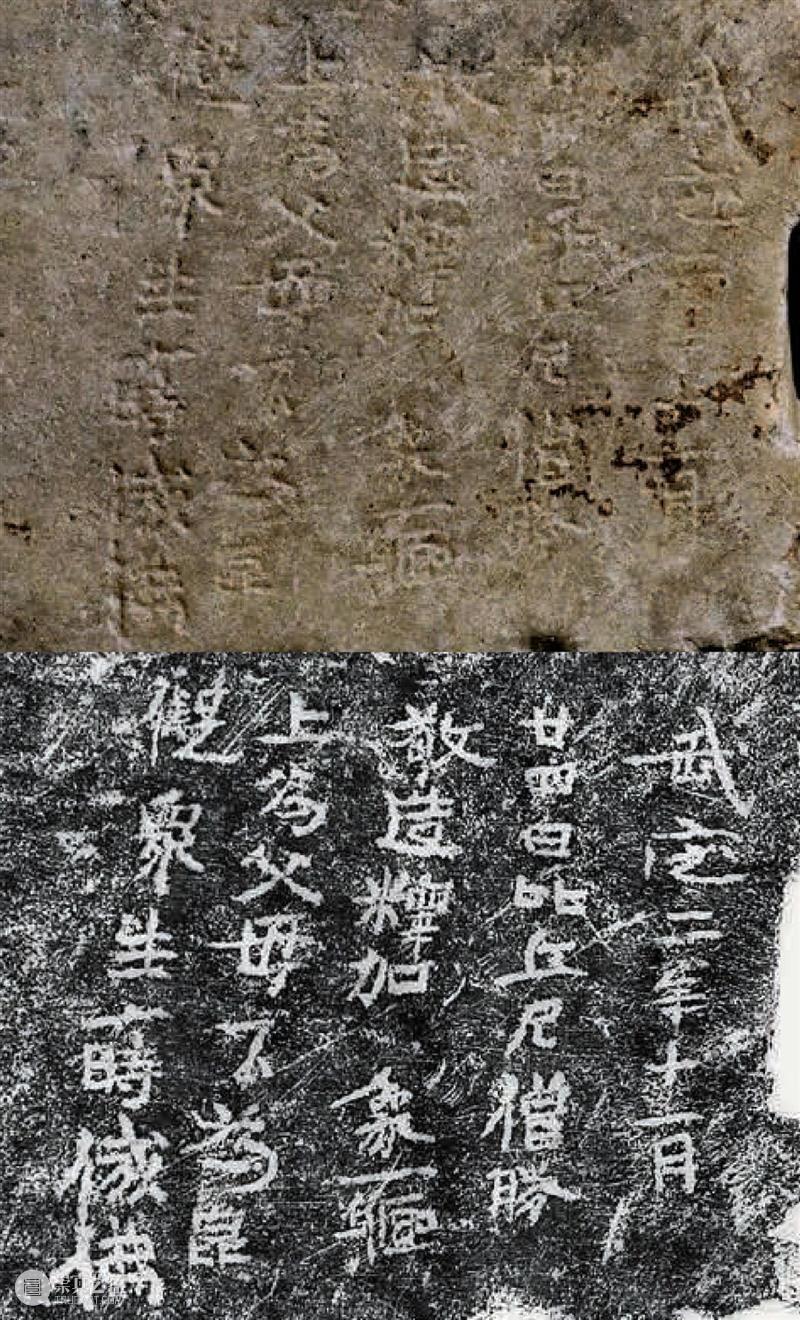 武定二年十一月
廿四日比丘尼僧勝
敬造釋加象一軀
上為父母下為臣
眾生一時成佛